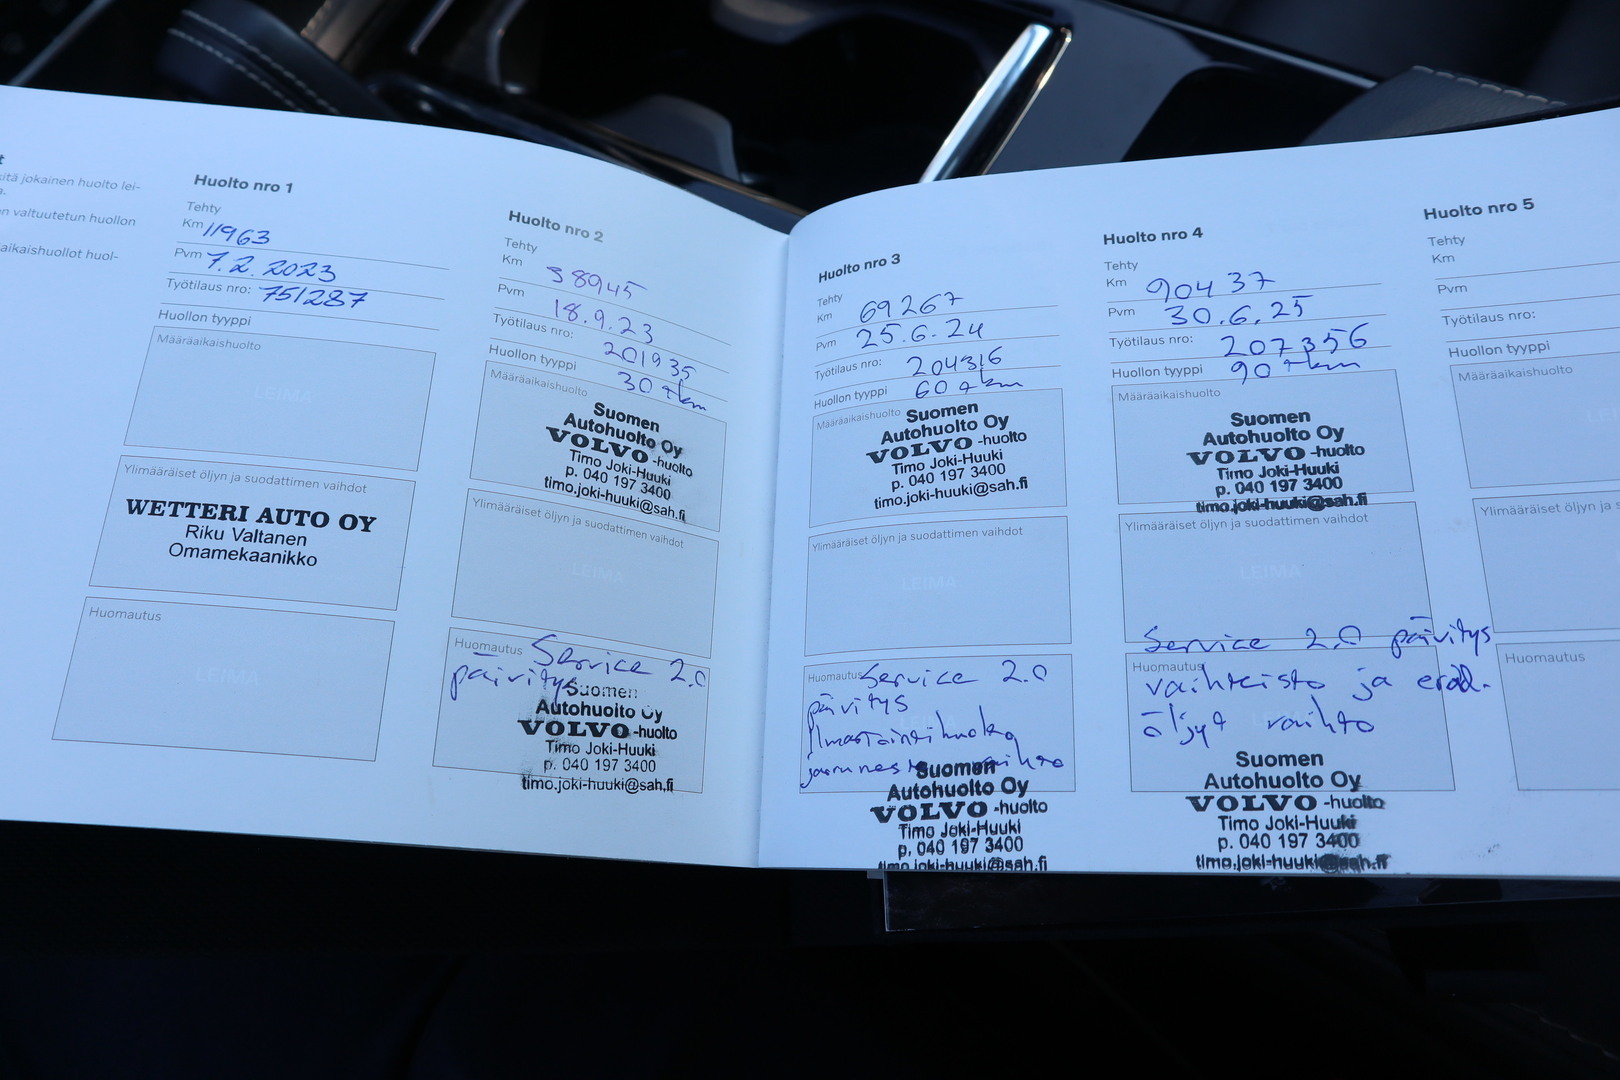 t
itä jokainen huolto lei-
a.
n valtuutetun huollon
aikaishuollot huol-
Huolto nro 1
Tehty
Km 11963
Pvm 7.2.2023
Työtilaus nro: 751287
Huollon tyyppi
Määräaikaishuolto
LEIMA
Ylimääräiset öljyn ja suodattimen vaihdot
WETTERI AUTO OY
Riku Valtanen
Omamekaanikko
Huomautus
LEIMA
Huolto nro 2
Tehty
Km 38945
Pvm 18.9.23
Työtilaus nro: 201935
Huollon tyyppi 30 tkm
Määräaikaishuolto
Suomen
Autohuolto Oy
VOLVO -huolto
Timo Joki-Huuki
p. 040 197 3400
timo.joki-huuki@sah.fi
Ylimääräiset öljyn ja suodattimen vaihdot
LEIMA
Huomautus Service 2.0
päivitys
Suomen
Autohuolto Oy
VOLVO -huolto
Timo Joki-Huuki
p. 040 197 3400
timo.joki-huuki@sah.fi
Huolto nro 3
Tehty
Km 69267
Pvm 25.6.24
Työtilaus nro: 204316
Huollon tyyppi 60 tkm
Määräaikaishuolto
Suomen
Autohuolto Oy
VOLVO -huolto
Timo Joki-Huuki
p. 040 197 3400
timo.joki-huuki@sah.fi
Ylimääräiset öljyn ja suodattimen vaihdot
LEIMA
Huomautus Service 2.0
päivitys
Ilmastointihuolto
jarruneste vaihto
Suomen
Autohuolto Oy
VOLVO -huolto
Timo Joki-Huuki
p. 040 197 3400
timo.joki-huuki@sah.fi
Huolto nro 4
Tehty
Km 90437
Pvm 30.6.25
Työtilaus nro: 207356
Huollon tyyppi 90 tkm
Määräaikaishuolto
Suomen
Autohuolto Oy
VOLVO -huolto
Timo Joki-Huuki
p. 040 197 3400
timo.joki-huuki@sah.fi
Ylimääräiset öljyn ja suodattimen vaihdot
LEIMA
Service 2.0 päivitys
Huomautus
vaihteisto ja
öljyt vaihto
Suomen
Autohuolto Oy
VOLVO -huolto
Timo Joki-Huuki
p. 040 197 3400
timo.joki-huuki@sah.fi
Huolto nro 5
Tehty
Km
Pvm
Työtilaus nro:
Huollon tyyppi
Määräaikaishuolto
LEI
Ylimääräiset öljyn ja s
Huomautus